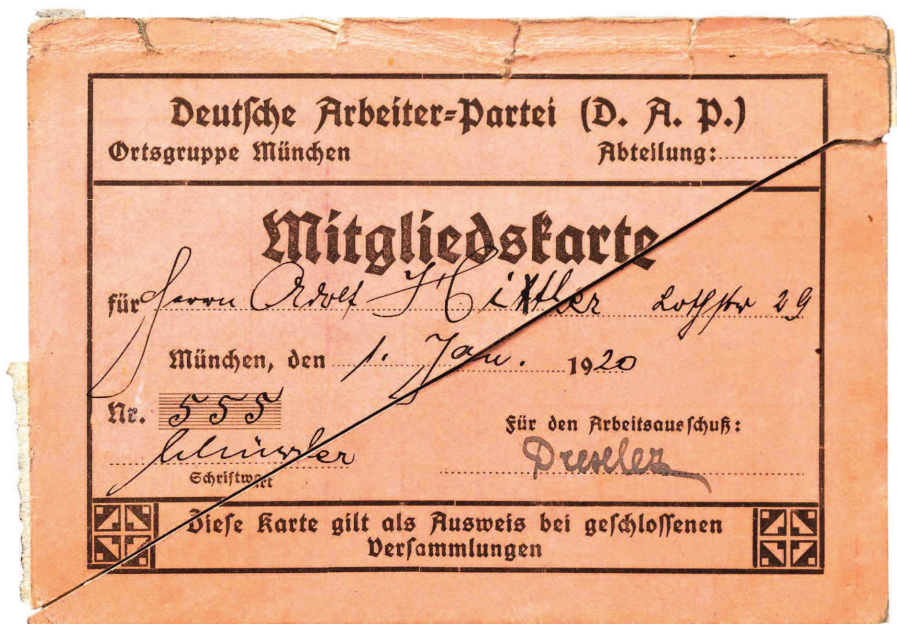 Deutsche Arbeiter-Partei (D. A. P.)
Ortsgruppe München Abteilung:
Mitgliedskarte
für Herrn Adolf Hittler Lothstr 29
München, den 1. Jan. 1920
Nr. 555
Für den Arbeitsausschuß:
Schüssler Drexler
Schriftwart
Diese Karte gilt als Ausweis bei geschlossenen
Versammlungen